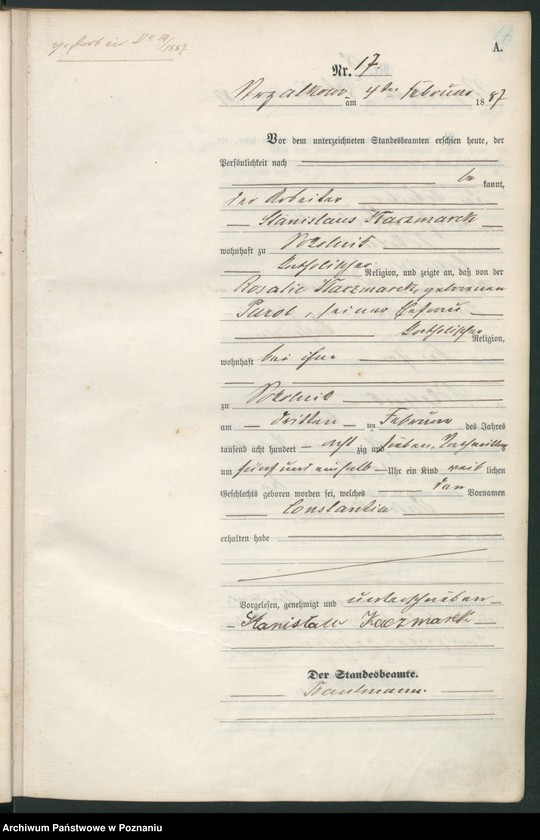 gestorben No 19/1887
17
A.
Nr. 17.
am 4ten Februar 1887
Vor dem unterzeichneten Standesbeamten erschien heute, der
Persönlichkeit nach
be kannt,
der Arbeiter
Stanislaus Kaczmarek
wohnhaft zu
katholischer Religion, und zeigte an, daß von der
Rosalie Kaczmarek, geborenen
Parol, seiner Ehefrau
katholischer Religion,
wohnhaft bei ihm
zu
am dritten ten Februar des Jahres
tausend acht hundert acht zig und sieben, Nachmittag
um fünf und einhalb Uhr ein Kind weib lichen
Geschlechts geboren worden sei, welches den Vornamen
Constantia
erhalten habe
Vorgelesen, genehmigt und unterschrieben
Stanisław Kaczmarek
Der Standesbeamte.
Archiwum Państwowe w Poznaniu